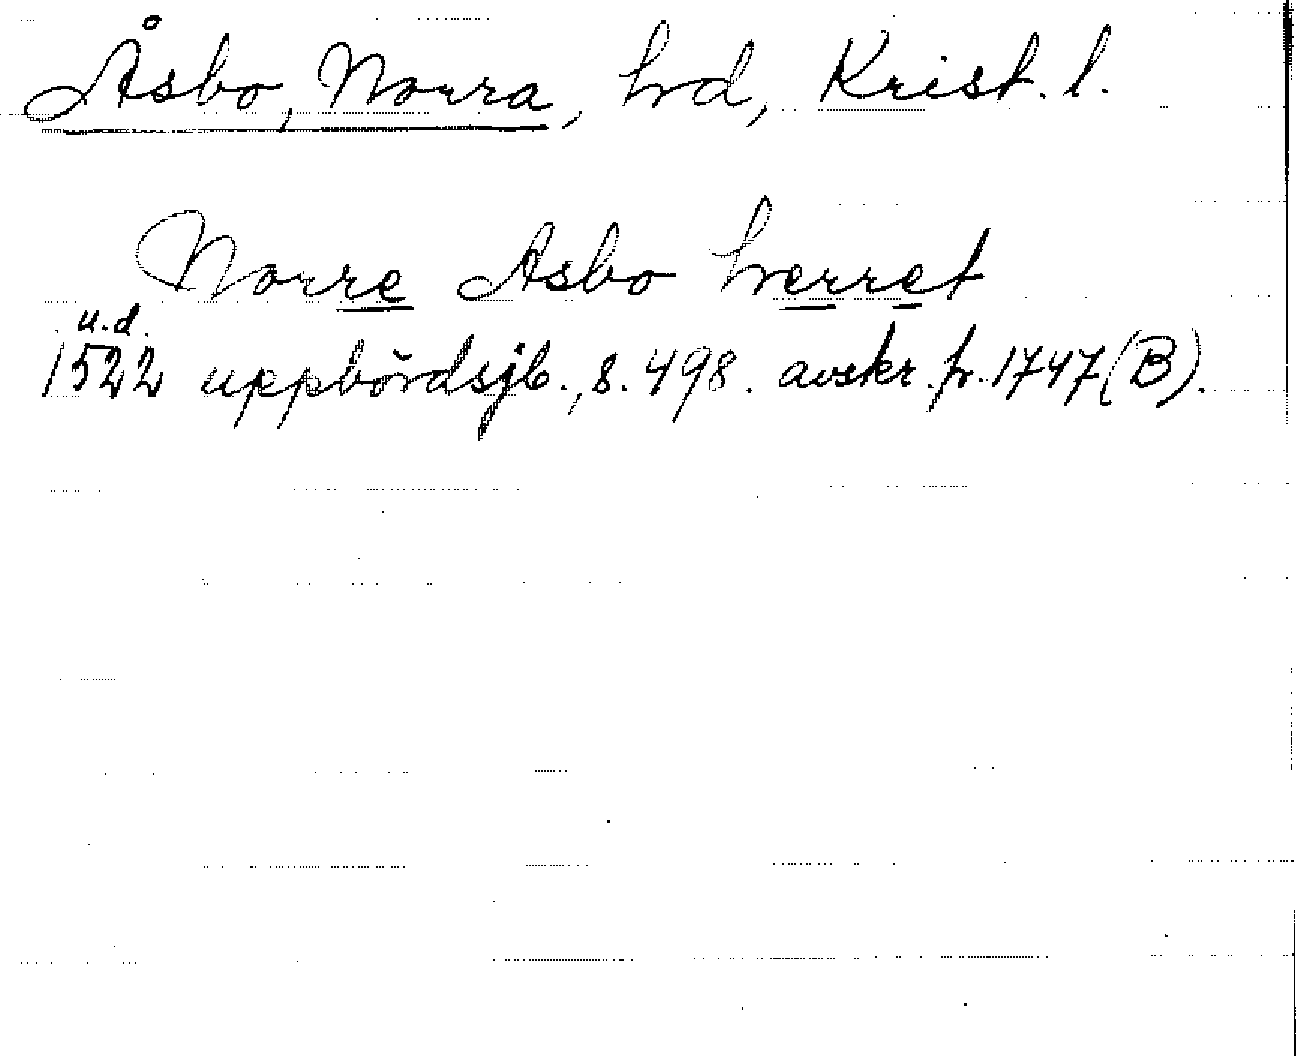 Åsbo, Norra, hrd, Krist. l.
Norre Asbo herret
u.d.
1522 uppbördsjb., s. 498. avskr. fr. 1747 (B).